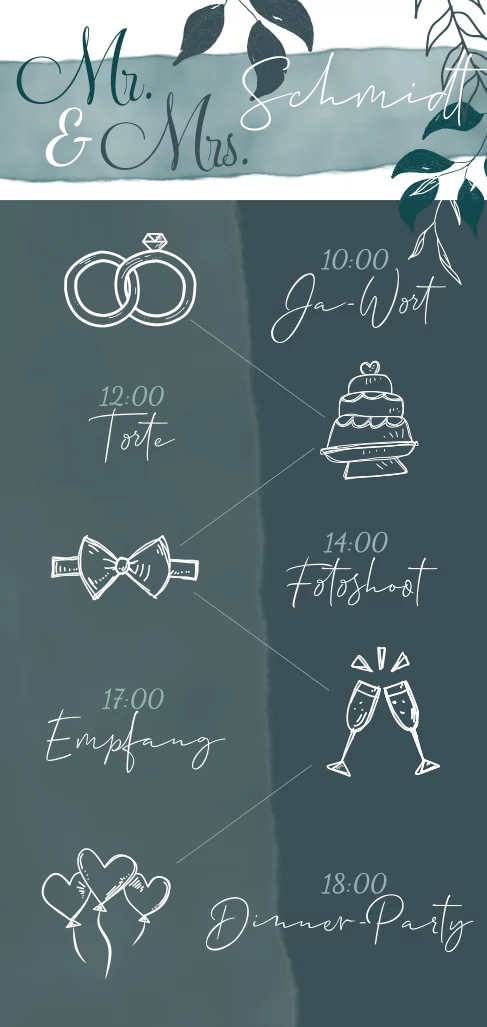 Mr.
& Mrs.
Schmidt
10:00
Ja-Wort
12:00
Torte
14:00
Fotoshoot
17:00
Empfang
18:00
Dinner-Party